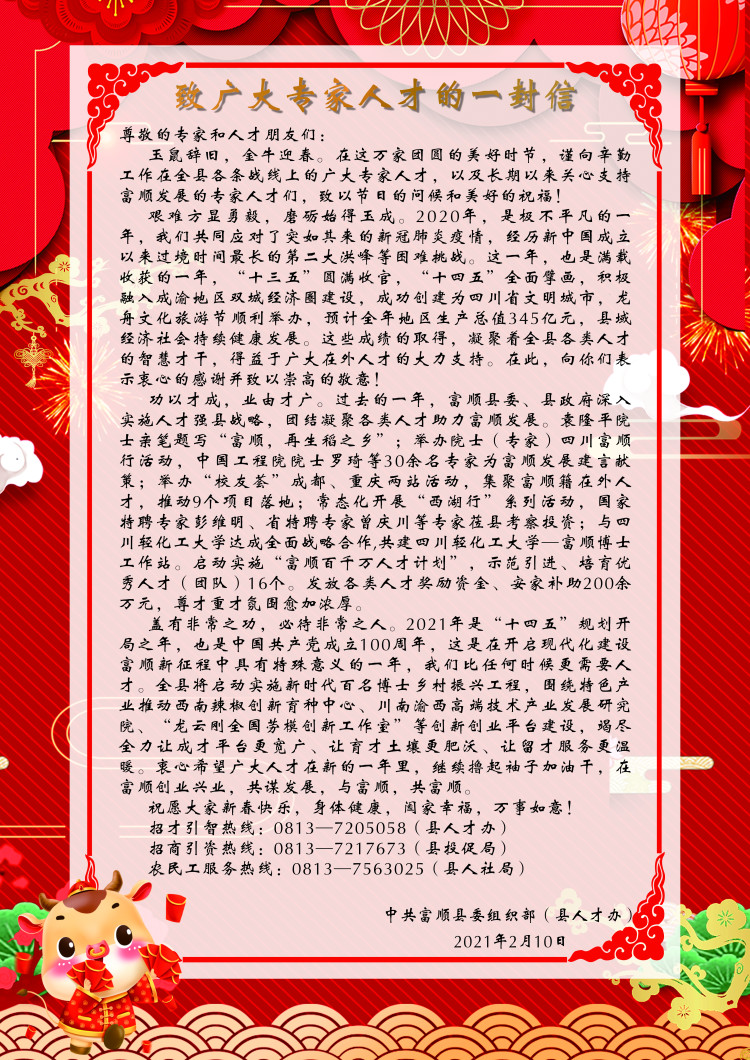 致广大专家人才的一封信
尊敬的专家和人才朋友们：
玉鼠辞旧，金牛迎春。在这万家团圆的美好时节，谨向辛勤
工作在全县各条战线上的广大专家人才，以及长期以来关心支持
富顺发展的专家人才们，致以节日的问候和美好的祝福！
艰难方显勇毅，磨砺始得玉成。2020年，是极不平凡的一
年，我们共同应对了突如其来的新冠肺炎疫情，经历新中国成立
以来过境时间最长的第二大洪峰等困难挑战。这一年，也是满载
收获的一年，“十三五”圆满收官，“十四五”全面擘画，积极
融入成渝地区双城经济圈建设，成功创建为四川省文明城市，龙
舟文化旅游节顺利举办，预计全年地区生产总值345亿元，县域
经济社会持续健康发展。这些成绩的取得，凝聚着全县各类人才
的智慧才干，得益于广大在外人才的大力支持。在此，向你们表
示衷心的感谢并致以崇高的敬意！
功以才成，业由才广。过去的一年，富顺县委、县政府深入
实施人才强县战略，团结凝聚各类人才助力富顺发展。袁隆平院
士亲笔题写“富顺，再生稻之乡”；举办院士（专家）四川富顺
行活动，中国工程院院士罗琦等30余名专家为富顺发展建言献
策；举办“校友荟”成都、重庆两站活动，集聚富顺籍在外人
才，推动9个项目落地；常态化开展“西湖行”系列活动，国家
特聘专家彭维明、省特聘专家曾庆川等专家莅县考察投资；与四
川轻化工大学达成全面战略合作,共建四川轻化工大学—富顺博士
工作站。启动实施“富顺百千万人才计划”，示范引进、培育优
秀人才（团队）16个。发放各类人才奖励资金、安家补助200余
万元，尊才重才氛围愈加浓厚。
盖有非常之功，必待非常之人。2021年是“十四五”规划开
局之年，也是中国共产党成立100周年，这是在开启现代化建设
富顺新征程中具有特殊意义的一年，我们比任何时候更需要人
才。全县将启动实施新时代百名博士乡村振兴工程，围绕特色产
业推动西南辣椒创新育种中心、川南渝西高端技术产业发展研究
院、“龙云刚全国劳模创新工作室”等创新创业平台建设，竭尽
全力让成才平台更宽广、让育才土壤更肥沃、让留才服务更温
暖。衷心希望广大人才在新的一年里，继续撸起袖子加油干，在
富顺创业兴业，共谋发展，与富顺，共富顺。
祝愿大家新春快乐，身体健康，阖家幸福，万事如意！
招才引智热线：0813—7205058（县人才办）
招商引资热线：0813—7217673（县投促局）
农民工服务热线：0813—7563025（县人社局）
中共富顺县委组织部（县人才办）
2021年2月10日